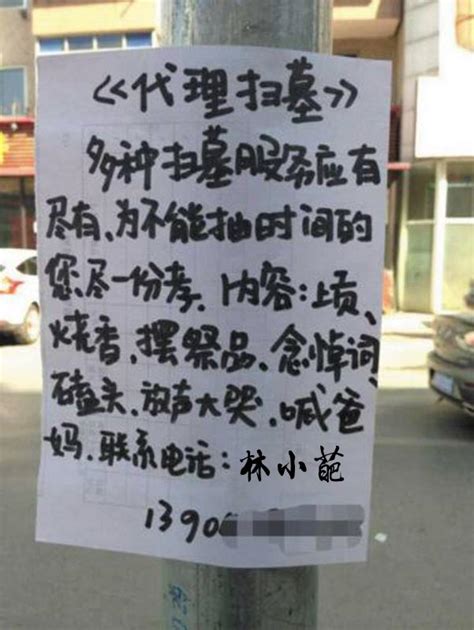 《代理扫墓》
多种扫墓服务应有
尽有、为不能抽时间的
您尽一份孝、内容：上贡、
烧香、摆祭品、念悼词
磕头、放声大哭、喊爸
妈、联系电话：林小葩
1390